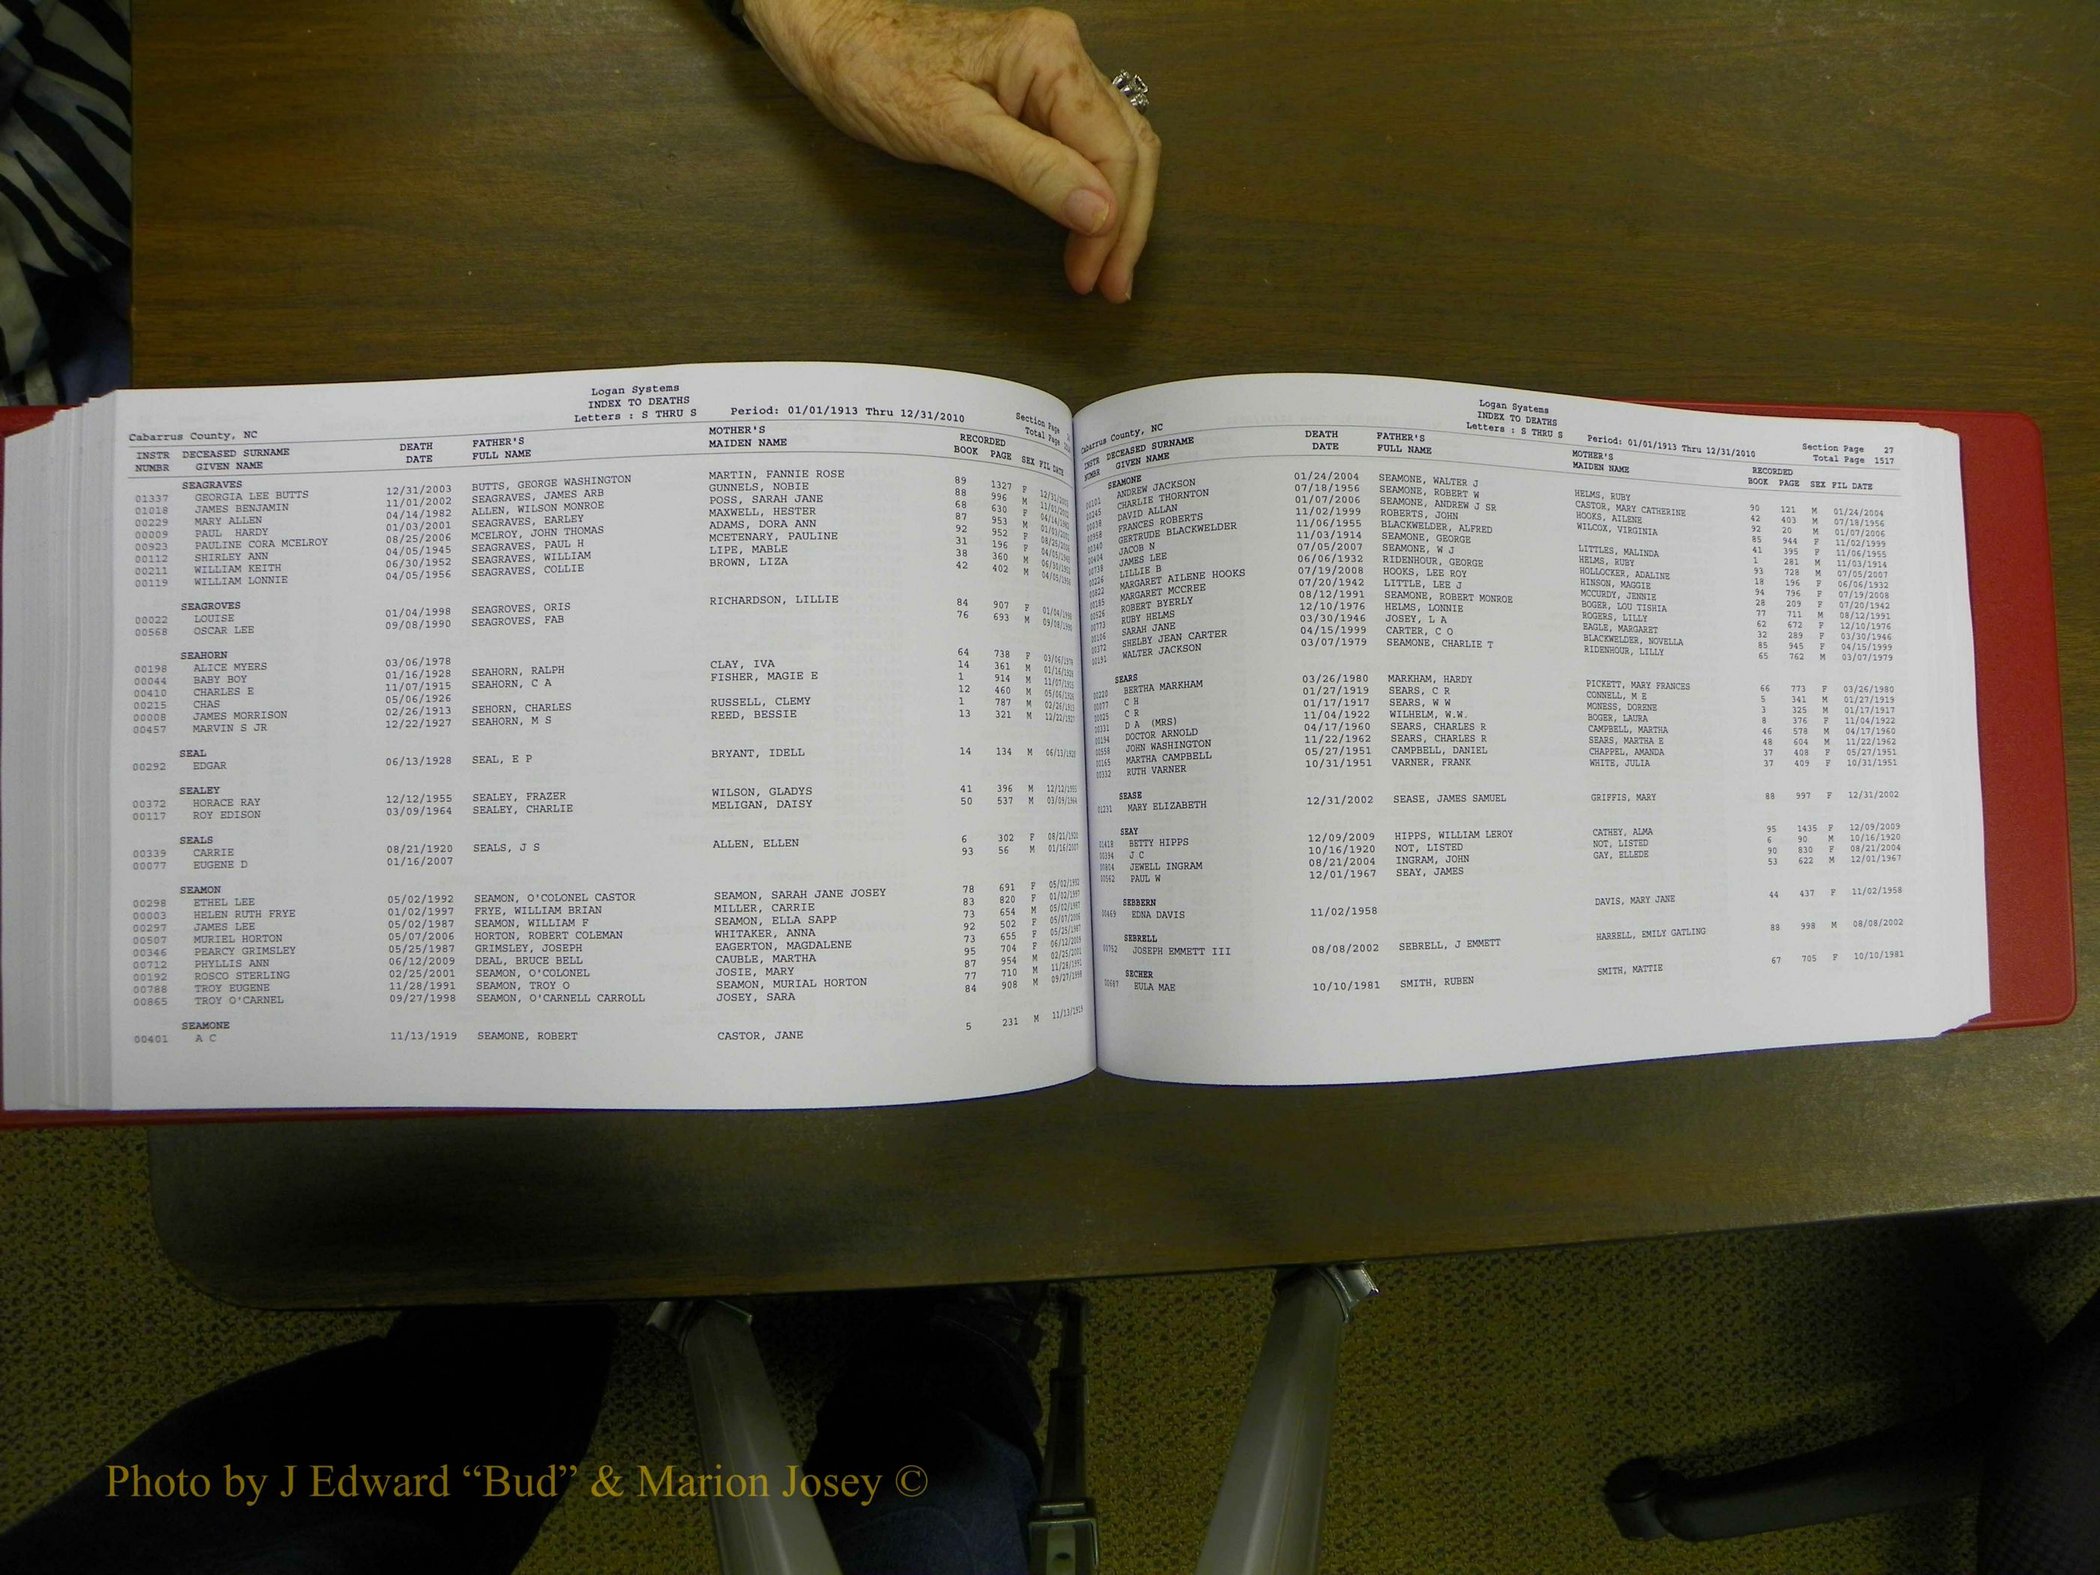 Logan Systems
INDEX TO DEATHS
Letters : S THRU S Period: 01/01/1913 Thru 12/31/2010
Cabarrus County, NC Section Page
Total Page
INSTR DECEASED SURNAME DEATH FATHER'S MOTHER'S RECORDED
NUMBR GIVEN NAME DATE FULL NAME MAIDEN NAME BOOK PAGE SEX FIL DATE
SEAGRAVES
01337 GEORGIA LEE BUTTS 12/31/2003 BUTTS, GEORGE WASHINGTON MARTIN, FANNIE ROSE 89 1327 F
01018 JAMES BENJAMIN 11/01/2002 SEAGRAVES, JAMES ARB GUNNELS, NOBIE 88 996 M
00229 MARY ALLEN 04/14/1982 ALLEN, WILSON MONROE POSS, SARAH JANE 68 630 F
00009 PAUL HARDY 01/03/2001 SEAGRAVES, EARLEY MAXWELL, HESTER 87 953 M
00923 PAULINE CORA MCELROY 08/25/2006 MCELROY, JOHN THOMAS ADAMS, DORA ANN 92 952 F
00112 SHIRLEY ANN 04/05/1945 SEAGRAVES, PAUL H MCETENARY, PAULINE 31 196 F
00211 WILLIAM KEITH 06/30/1952 SEAGRAVES, WILLIAM LIPE, MABLE 38 360 M
00119 WILLIAM LONNIE 04/05/1956 SEAGRAVES, COLLIE BROWN, LIZA 42 402 M
SEAGROVES
00022 LOUISE 01/04/1998 SEAGROVES, ORIS RICHARDSON, LILLIE 84 907 F 01/04/1998
00568 OSCAR LEE 09/08/1990 SEAGROVES, FAB 76 693 M 09/08/1990
SEAHORN
00198 ALICE MYERS 03/06/1978 64 738 F 03/06/1978
00044 BABY BOY 01/16/1928 SEAHORN, RALPH CLAY, IVA 14 361 M 01/16/1928
00410 CHARLES E 11/07/1915 SEAHORN, C A FISHER, MAGIE E 1 914 M 11/07/1915
00215 CHAS 05/06/1926 12 460 M 05/06/1926
00008 JAMES MORRISON 02/26/1913 SEHORN, CHARLES RUSSELL, CLEMY 1 787 M 02/26/1913
00457 MARVIN S JR 12/22/1927 SEAHORN, M S REED, BESSIE 13 321 M 12/22/1927
SEAL
00292 EDGAR 06/13/1928 SEAL, E P BRYANT, IDELL 14 134 M 06/13/1928
SEALEY
00372 HORACE RAY 12/12/1955 SEALEY, FRAZER WILSON, GLADYS 41 396 M 12/12/1955
00117 ROY EDISON 03/09/1964 SEALEY, CHARLIE MELIGAN, DAISY 50 537 M 03/09/1964
SEALS
00339 CARRIE 08/21/1920 SEALS, J S ALLEN, ELLEN 6 302 F 08/21/1920
00077 EUGENE D 01/16/2007 93 56 M 01/16/2007
SEAMON
00298 ETHEL LEE 05/02/1992 SEAMON, O'COLONEL CASTOR SEAMON, SARAH JANE JOSEY 78 691 F 05/02/1992
00003 HELEN RUTH FRYE 01/02/1997 FRYE, WILLIAM BRIAN MILLER, CARRIE 83 820 F 01/02/1997
00297 JAMES LEE 05/02/1987 SEAMON, WILLIAM F SEAMON, ELLA SAPP 73 654 M 05/02/1987
00507 MURIEL HORTON 05/07/2006 HORTON, ROBERT COLEMAN WHITAKER, ANNA 92 502 F 05/07/2006
00346 PEARCY GRIMSLEY 05/25/1987 GRIMSLEY, JOSEPH EAGERTON, MAGDALENE 73 655 F 05/25/1987
00712 PHYLLIS ANN 06/12/2009 DEAL, BRUCE BELL CAUBLE, MARTHA 95 704 F 06/12/2009
00192 ROSCO STERLING 02/25/2001 SEAMON, O'COLONEL JOSIE, MARY 87 954 M 02/25/2001
00788 TROY EUGENE 11/28/1991 SEAMON, TROY O SEAMON, MURIAL HORTON 77 710 M 11/28/1991
00865 TROY O'CARNEL 09/27/1998 SEAMON, O'CARNELL CARROLL JOSEY, SARA 84 908 M 09/27/1998
SEAMONE
00401 A C 11/13/1919 SEAMONE, ROBERT CASTOR, JANE 5 231 M 11/13/1919
Logan Systems
INDEX TO DEATHS
Letters : S THRU S Period: 01/01/1913 Thru 12/31/2010
Cabarrus County, NC Section Page 27
Total Page 1517
INSTR DECEASED SURNAME DEATH FATHER'S MOTHER'S RECORDED
NUMBR GIVEN NAME DATE FULL NAME MAIDEN NAME BOOK PAGE SEX FIL DATE
SEAMONE
00101 ANDREW JACKSON 01/24/2004 SEAMONE, WALTER J HELMS, RUBY 90 121 M 01/24/2004
00245 CHARLIE THORNTON 07/18/1956 SEAMONE, ROBERT W CASTOR, MARY CATHERINE 42 403 M 07/18/1956
00038 DAVID ALLAN 01/07/2006 SEAMONE, ANDREW J SR HOOKS, AILENE 92 20 M 01/07/2006
00958 FRANCES ROBERTS 11/02/1999 ROBERTS, JOHN WILCOX, VIRGINIA 85 944 F 11/02/1999
00340 GERTRUDE BLACKWELDER 11/06/1955 BLACKWELDER, ALFRED LITTLES, MALINDA 41 395 F 11/06/1955
00404 JACOB N 11/03/1914 SEAMONE, GEORGE 1 281 M 11/03/1914
00738 JAMES LEE 07/05/2007 SEAMONE, W J HELMS, RUBY 93 728 M 07/05/2007
00226 LILLIE B 06/06/1932 RIDENHOUR, GEORGE HOLLOCKER, ADALINE 18 196 F 06/06/1932
00822 MARGARET AILENE HOOKS 07/19/2008 HOOKS, LEE ROY HINSON, MAGGIE 94 796 F 07/19/2008
00185 MARGARET MCCREE 07/20/1942 LITTLE, LEE J MCCURDY, JENNIE 28 209 F 07/20/1942
00526 ROBERT BYERLY 08/12/1991 SEAMONE, ROBERT MONROE BOGER, LOU TISHIA 77 711 M 08/12/1991
00773 RUBY HELMS 12/10/1976 HELMS, LONNIE ROGERS, LILLY 62 672 F 12/10/1976
00106 SARAH JANE 03/30/1946 JOSEY, L A EAGLE, MARGARET 32 289 F 03/30/1946
00372 SHELBY JEAN CARTER 04/15/1999 CARTER, C O BLACKWELDER, NOVELLA 85 945 F 04/15/1999
00191 WALTER JACKSON 03/07/1979 SEAMONE, CHARLIE T RIDENHOUR, LILLY 65 762 M 03/07/1979
SEARS
00220 BERTHA MARKHAM 03/26/1980 MARKHAM, HARDY PICKETT, MARY FRANCES 66 773 F 03/26/1980
00077 C H 01/27/1919 SEARS, C R CONNELL, M E 5 341 M 01/27/1919
00025 C R 01/17/1917 SEARS, W W MONESS, DORENE 3 325 M 01/17/1917
00331 D A (MRS) 11/04/1922 WILHELM, W.W. BOGER, LAURA 8 376 F 11/04/1922
00194 DOCTOR ARNOLD 04/17/1960 SEARS, CHARLES R CAMPBELL, MARTHA 46 578 M 04/17/1960
00558 JOHN WASHINGTON 11/22/1962 SEARS, CHARLES R SEARS, MARTHA E 48 604 M 11/22/1962
00165 MARTHA CAMPBELL 05/27/1951 CAMPBELL, DANIEL CHAPPEL, AMANDA 37 408 F 05/27/1951
00332 RUTH VARNER 10/31/1951 VARNER, FRANK WHITE, JULIA 37 409 F 10/31/1951
SEASE
01231 MARY ELIZABETH 12/31/2002 SEASE, JAMES SAMUEL GRIFFIS, MARY 88 997 F 12/31/2002
SEAY
01418 BETTY HIPPS 12/09/2009 HIPPS, WILLIAM LEROY CATHEY, ALMA 95 1435 F 12/09/2009
00394 J C 10/16/1920 NOT, LISTED NOT, LISTED 6 90 M 10/16/1920
00804 JEWELL INGRAM 08/21/2004 INGRAM, JOHN GAY, ELLEDE 90 830 F 08/21/2004
00562 PAUL W 12/01/1967 SEAY, JAMES 53 622 M 12/01/1967
SEBBERN
00469 EDNA DAVIS 11/02/1958 DAVIS, MARY JANE 44 437 F 11/02/1958
SEBRELL
00752 JOSEPH EMMETT III 08/08/2002 SEBRELL, J EMMETT HARRELL, EMILY GATLING 88 998 M 08/08/2002
SECHER
00687 EULA MAE 10/10/1981 SMITH, RUBEN SMITH, MATTIE 67 705 F 10/10/1981
Photo by J Edward “Bud” & Marion Josey ©